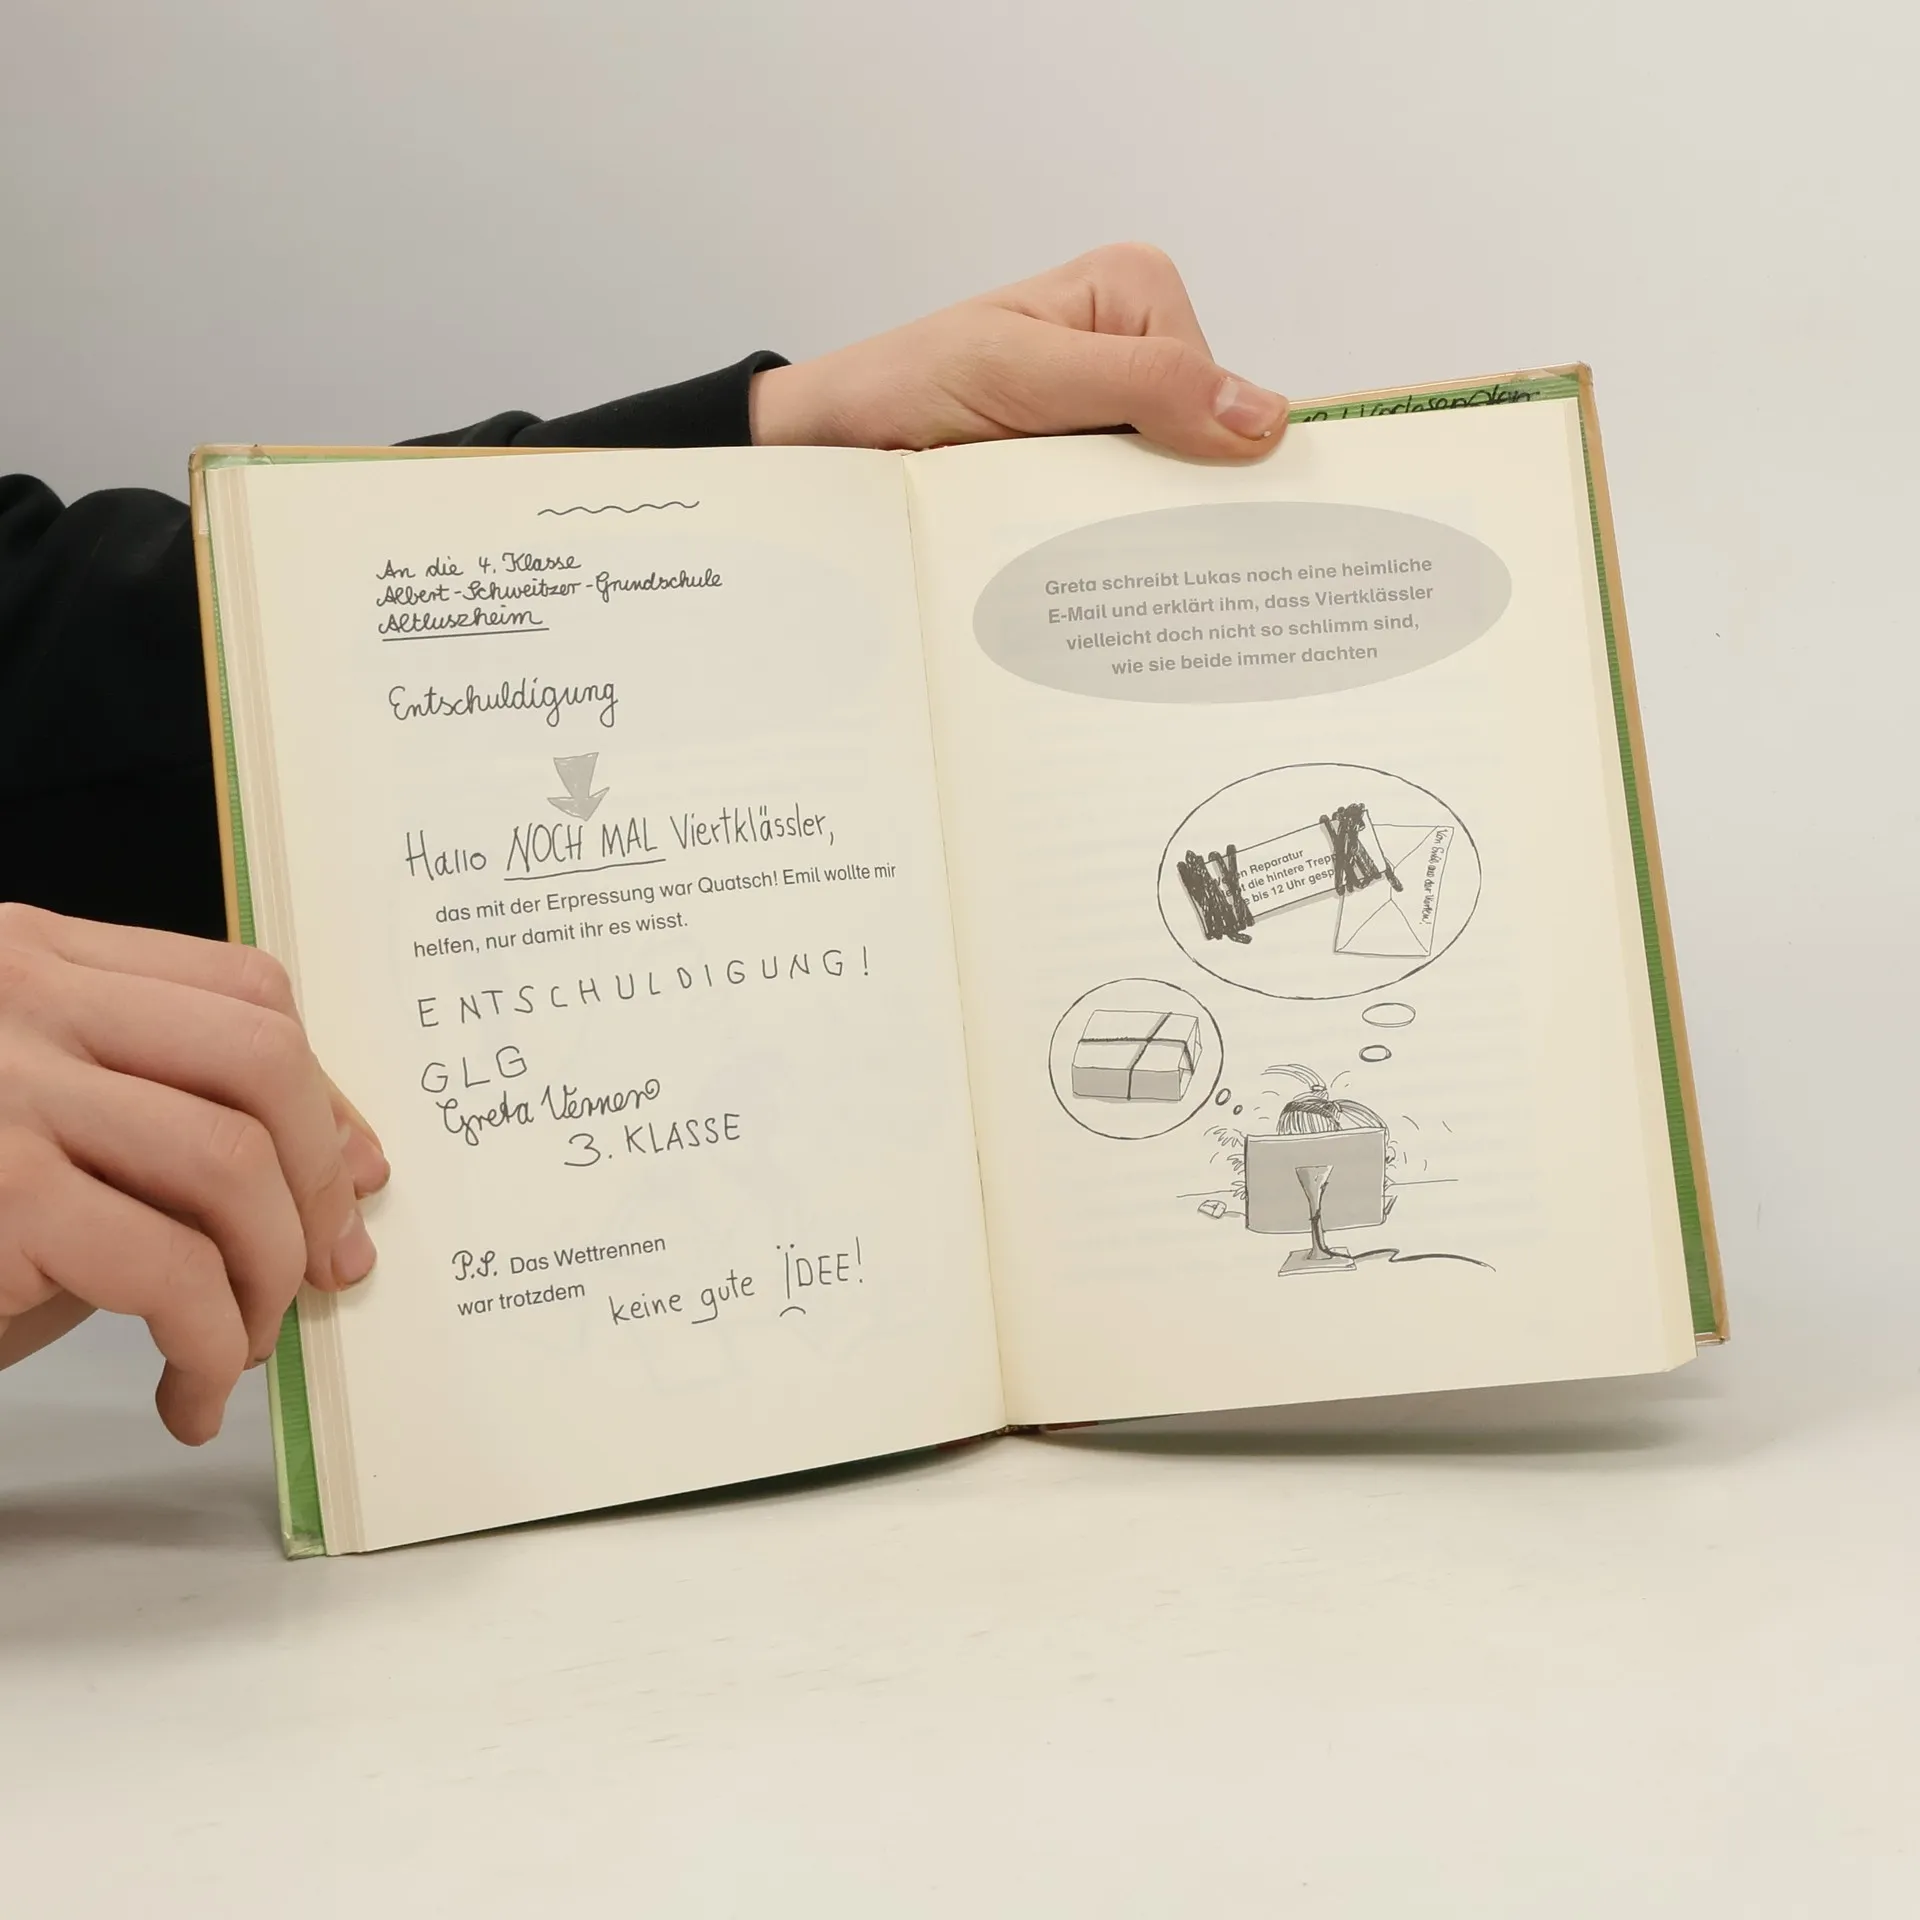 An die 4. Klasse
Albert-Schweitzer-Grundschule
Altluszheim
Entschuldigung
Hallo NOCH MAL Viertklässler,
das mit der Erpressung war Quatsch! Emil wollte mir
helfen, nur damit ihr es wisst.
ENTSCHULDIGUNG!
GLG
Greta Verner
3. KLASSE
P.S. Das Wettrennen
war trotzdem
keine gute ÏDEE!
Greta schreibt Lukas noch eine heimliche
E-Mail und erklärt ihm, dass Viertklässler
vielleicht doch nicht so schlimm sind,
wie sie beide immer dachten
Reparatur
die hintere
bis 12 Uhr